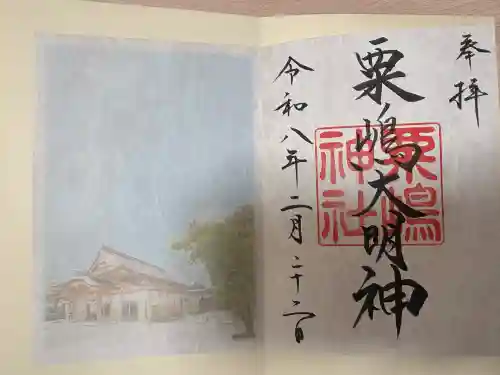 奉拝
粟嶋大明神
粟嶋
神社
令和八年二月二十二日